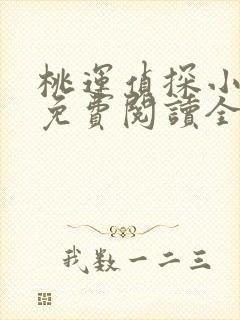 桃運偵探小
免費閱讀全
我数一二三